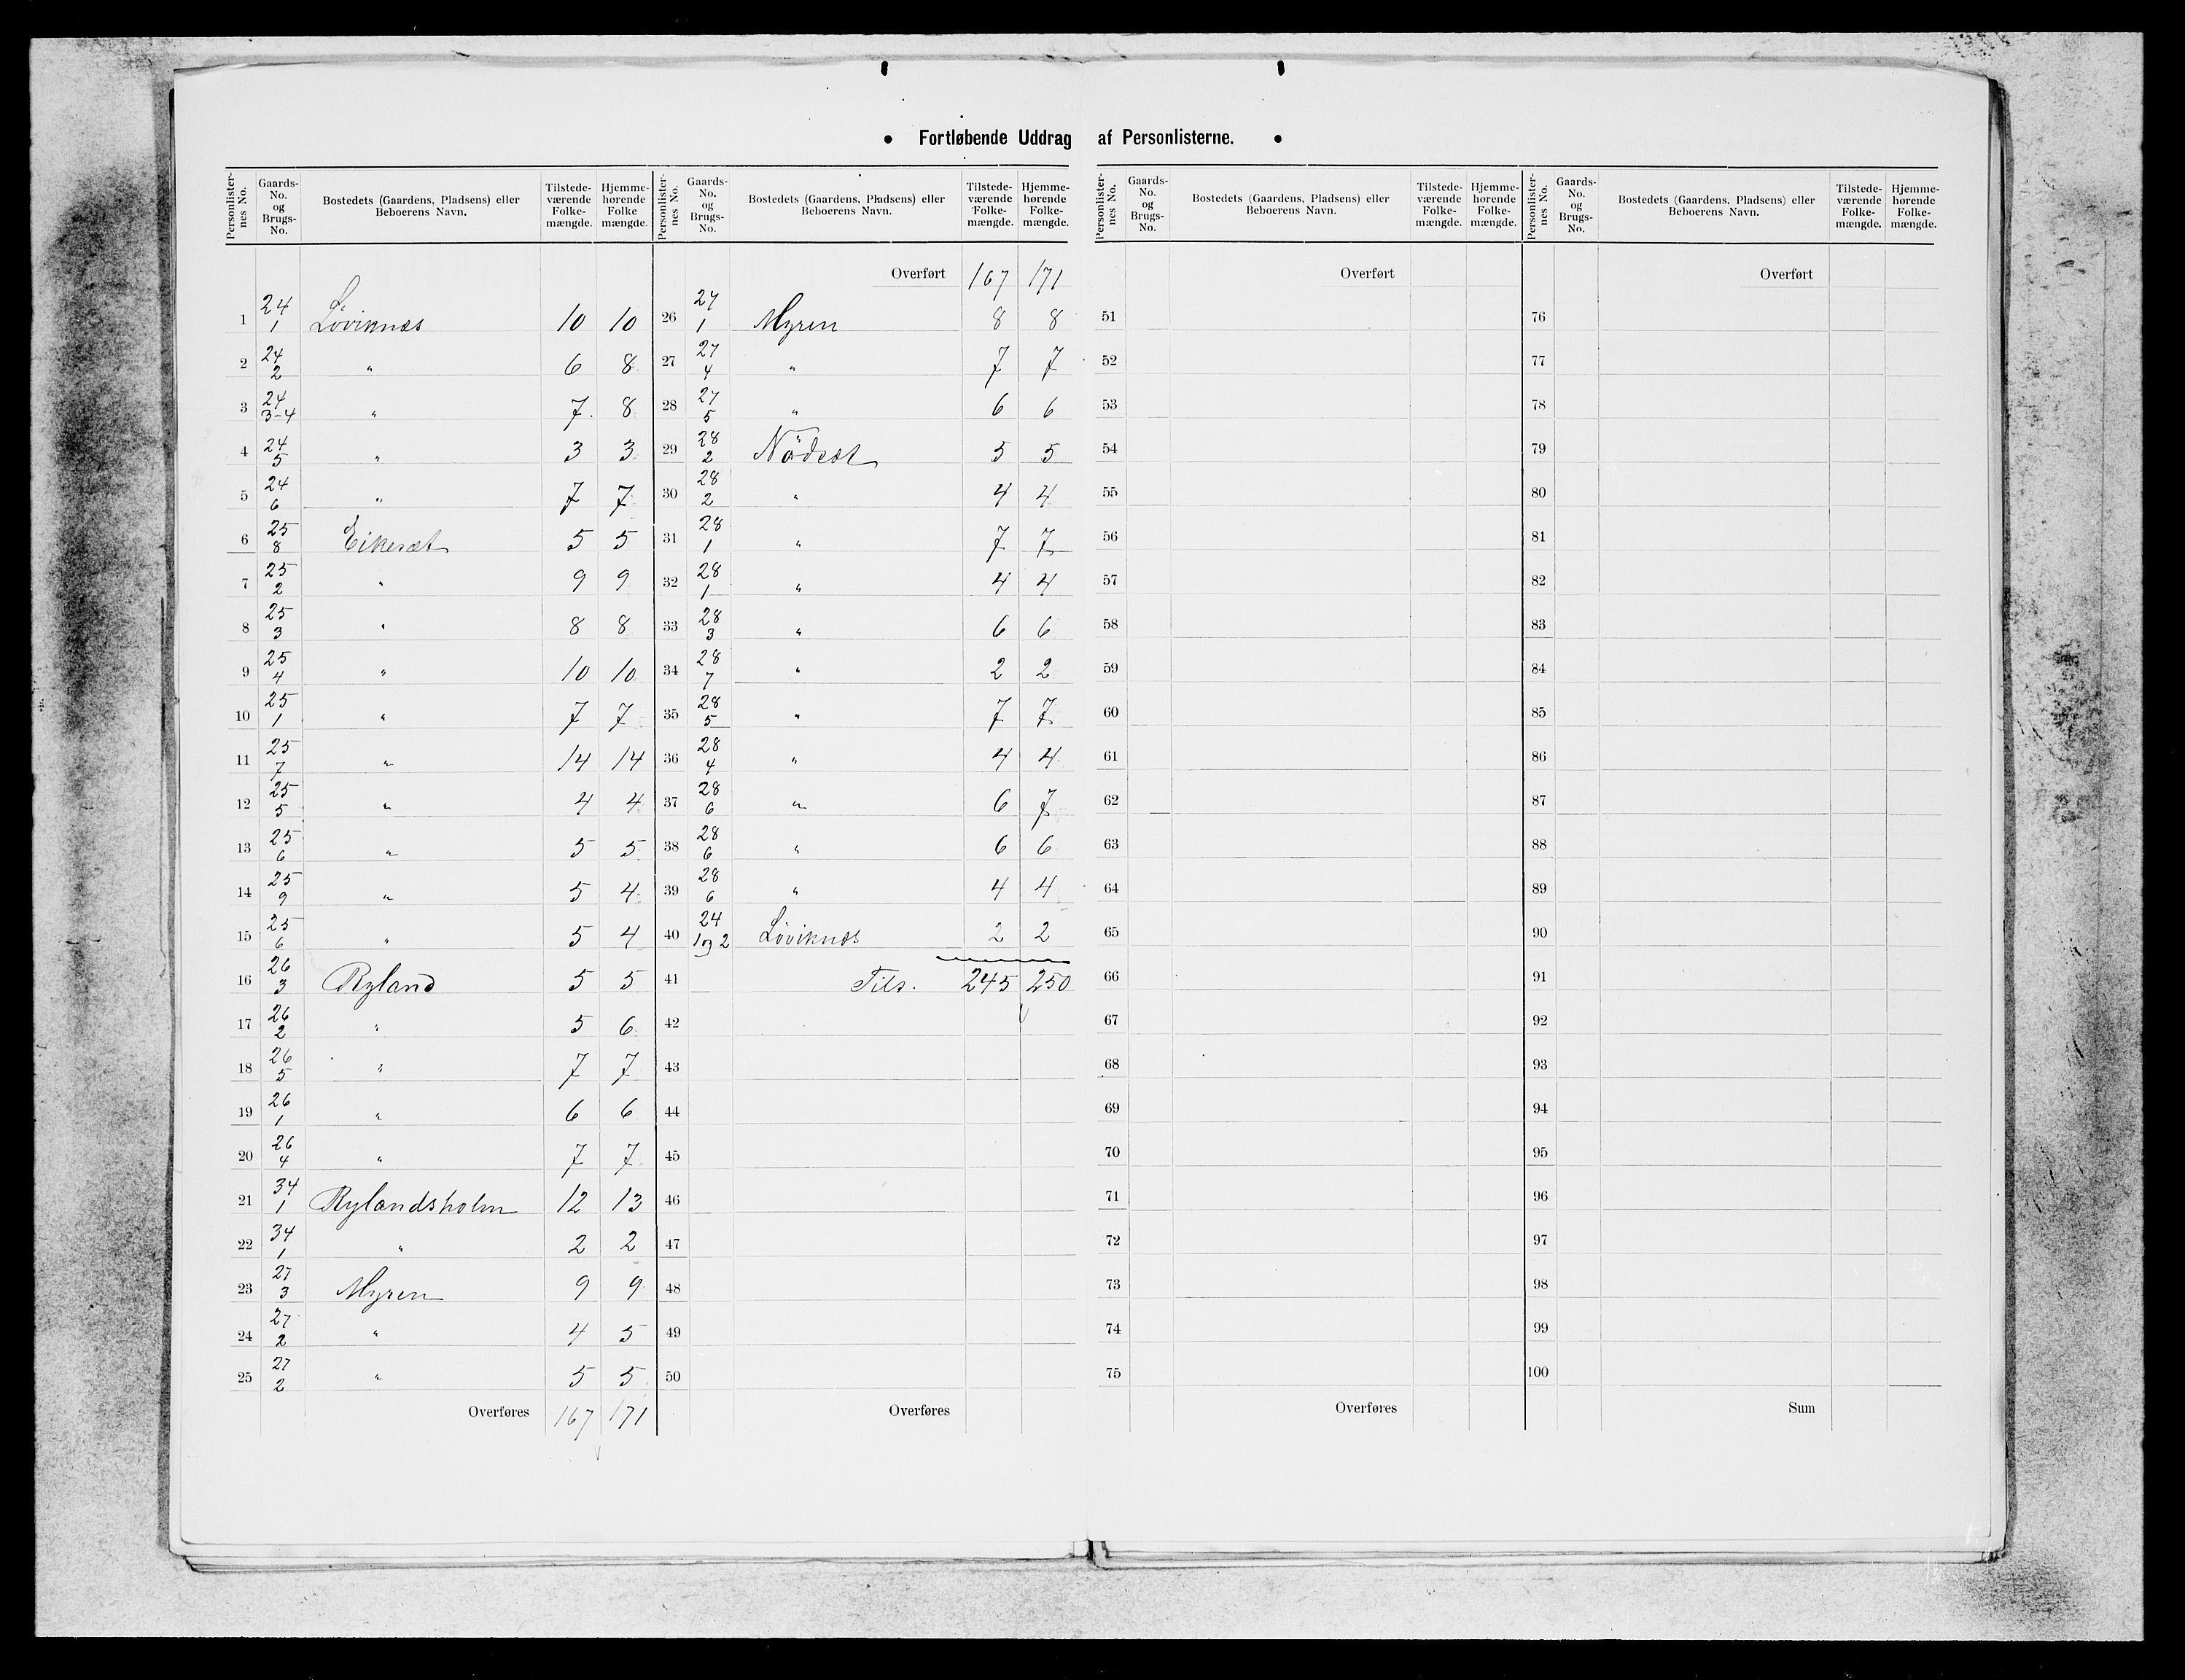 • Fortløbende Uddrag af Personlisterne. •
Personlister-nes No. Gaards-No. og Brugs-No. Bostedets (Gaardens, Pladsens) eller Beboerens Navn. Tilstede-værende Folke-mængde. Hjemme-hørende Folke mængde.
1 24/1 Löviknæs 10 10
2 24/2 " 6 8
3 24/3-4 " 7 8
4 24/5 " 3 3
5 24/6 " 7 7
6 25/8 Eikesæt 5 5
7 25/2 " 9 9
8 25/3 " 8 8
9 25/4 " 10 10
10 25/1 " 7 7
11 25/7 " 14 14
12 25/5 " 4 4
13 25/6 " 5 5
14 25/9 " 5 4
15 25/6 " 5 4
16 26/3 Ryland 5 5
17 26/2 " 5 6
18 26/5 " 7 7
19 26/1 " 6 6
20 26/4 " 7 7
21 34/1 Rylandsholm 12 13
22 34/1 " 2 2
23 27/3 Myren 9 9
24 27/2 " 4 5
25 27/2 " 5 5
Overføres 167 171
Personlister-nes No. Gaards-No. og Brugs-No. Bostedets (Gaardens, Pladsens) eller Beboerens Navn. Tilstede-værende Folke-mængde. Hjemme-hørende Folke-mængde.
Overført 167 171
26 27/1 Myren 8 8
27 27/4 " 7 7
28 27/5 " 6 6
29 28/2 Nödset 5 5
30 28/2 " 4 4
31 28/1 " 7 7
32 28/1 " 4 4
33 28/3 " 6 6
34 28/7 " 2 2
35 28/5 " 7 7
36 28/4 " 4 4
37 28/6 " 6 7
38 28/6 " 6 6
39 28/6 " 4 4
40 24/1 og 2 Löviknæs 2 2
41 Tils. 245 250
42
43
44
45
46
47
48
49
50
Overføres
Personlister-nes No. Gaards-No. og Brugs-No. Bostedets (Gaardens, Pladsens) eller Beboerens Navn. Tilstede-værende Folke-mængde. Hjemme-hørende Folke-mængde.
Overført
51
52
53
54
55
56
57
58
59
60
61
62
63
64
65
66
67
68
69
70
71
72
73
74
75
Overføres
Personlister-nes No. Gaards-No. og Brugs-No. Bostedets (Gaardens, Pladsens) eller Beboerens Navn. Tilstede-værende Folke-mængde. Hjemme-hørende Folke-mængde.
Overført
76
77
78
79
80
81
82
83
84
85
86
87
88
89
90
91
92
93
94
95
96
97
98
99
100
Sum